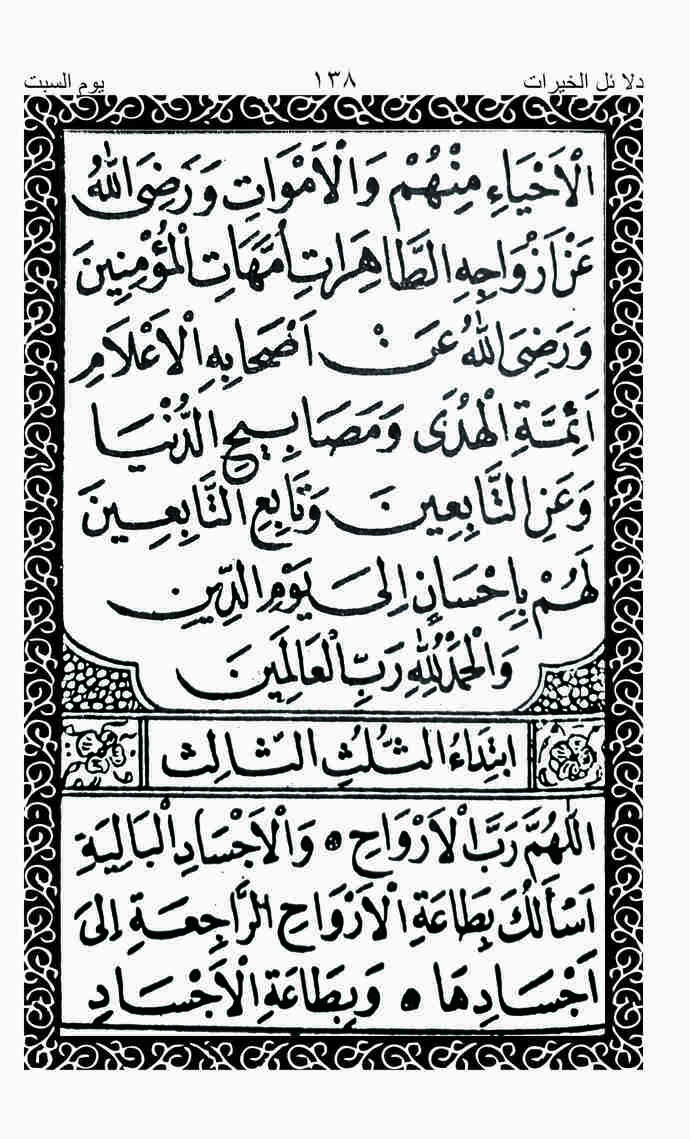 دلائل الخيرات ١٣٨ يوم السبت
الْاَحْيَاءِ مِنْهُمْ وَالْاَمْوَاتِ وَرَضِىَ اللّٰهُ
عَنْ اَزْوَاجِهِ الطَّاهِرَاتِ اُمَّهَاتِ الْمُؤْمِنِينَ
وَرَضِىَ اللّٰهُ عَنْ اَصْحَابِهِ الْاَعْلَامِ
اَئِمَّةِ الْهُدٰى وَمَصَابِيحِ الدُّنْيَا
وَعَنِ التَّابِعِينَ وَتَابِعِ التَّابِعِينَ
لَهُمْ بِاِحْسَانٍ اِلٰى يَوْمِ الدِّينِ
وَالْحَمْدُ لِلّٰهِ رَبِّ الْعَالَمِينَ
ابْتِدَاءُ الثُّلُثِ الثَّالِث
اَللّٰهُمَّ رَبَّ الْاَرْوَاحِ ۞ وَالْاَجْسَادِ الْبَالِيَةِ
اَسْاَلُكَ بِطَاعَةِ الْاَرْوَاحِ الرَّاجِعَةِ اِلٰى
اَجْسَادِهَا ۞ وَبِطَاعَةِ الْاَجْسَادِ